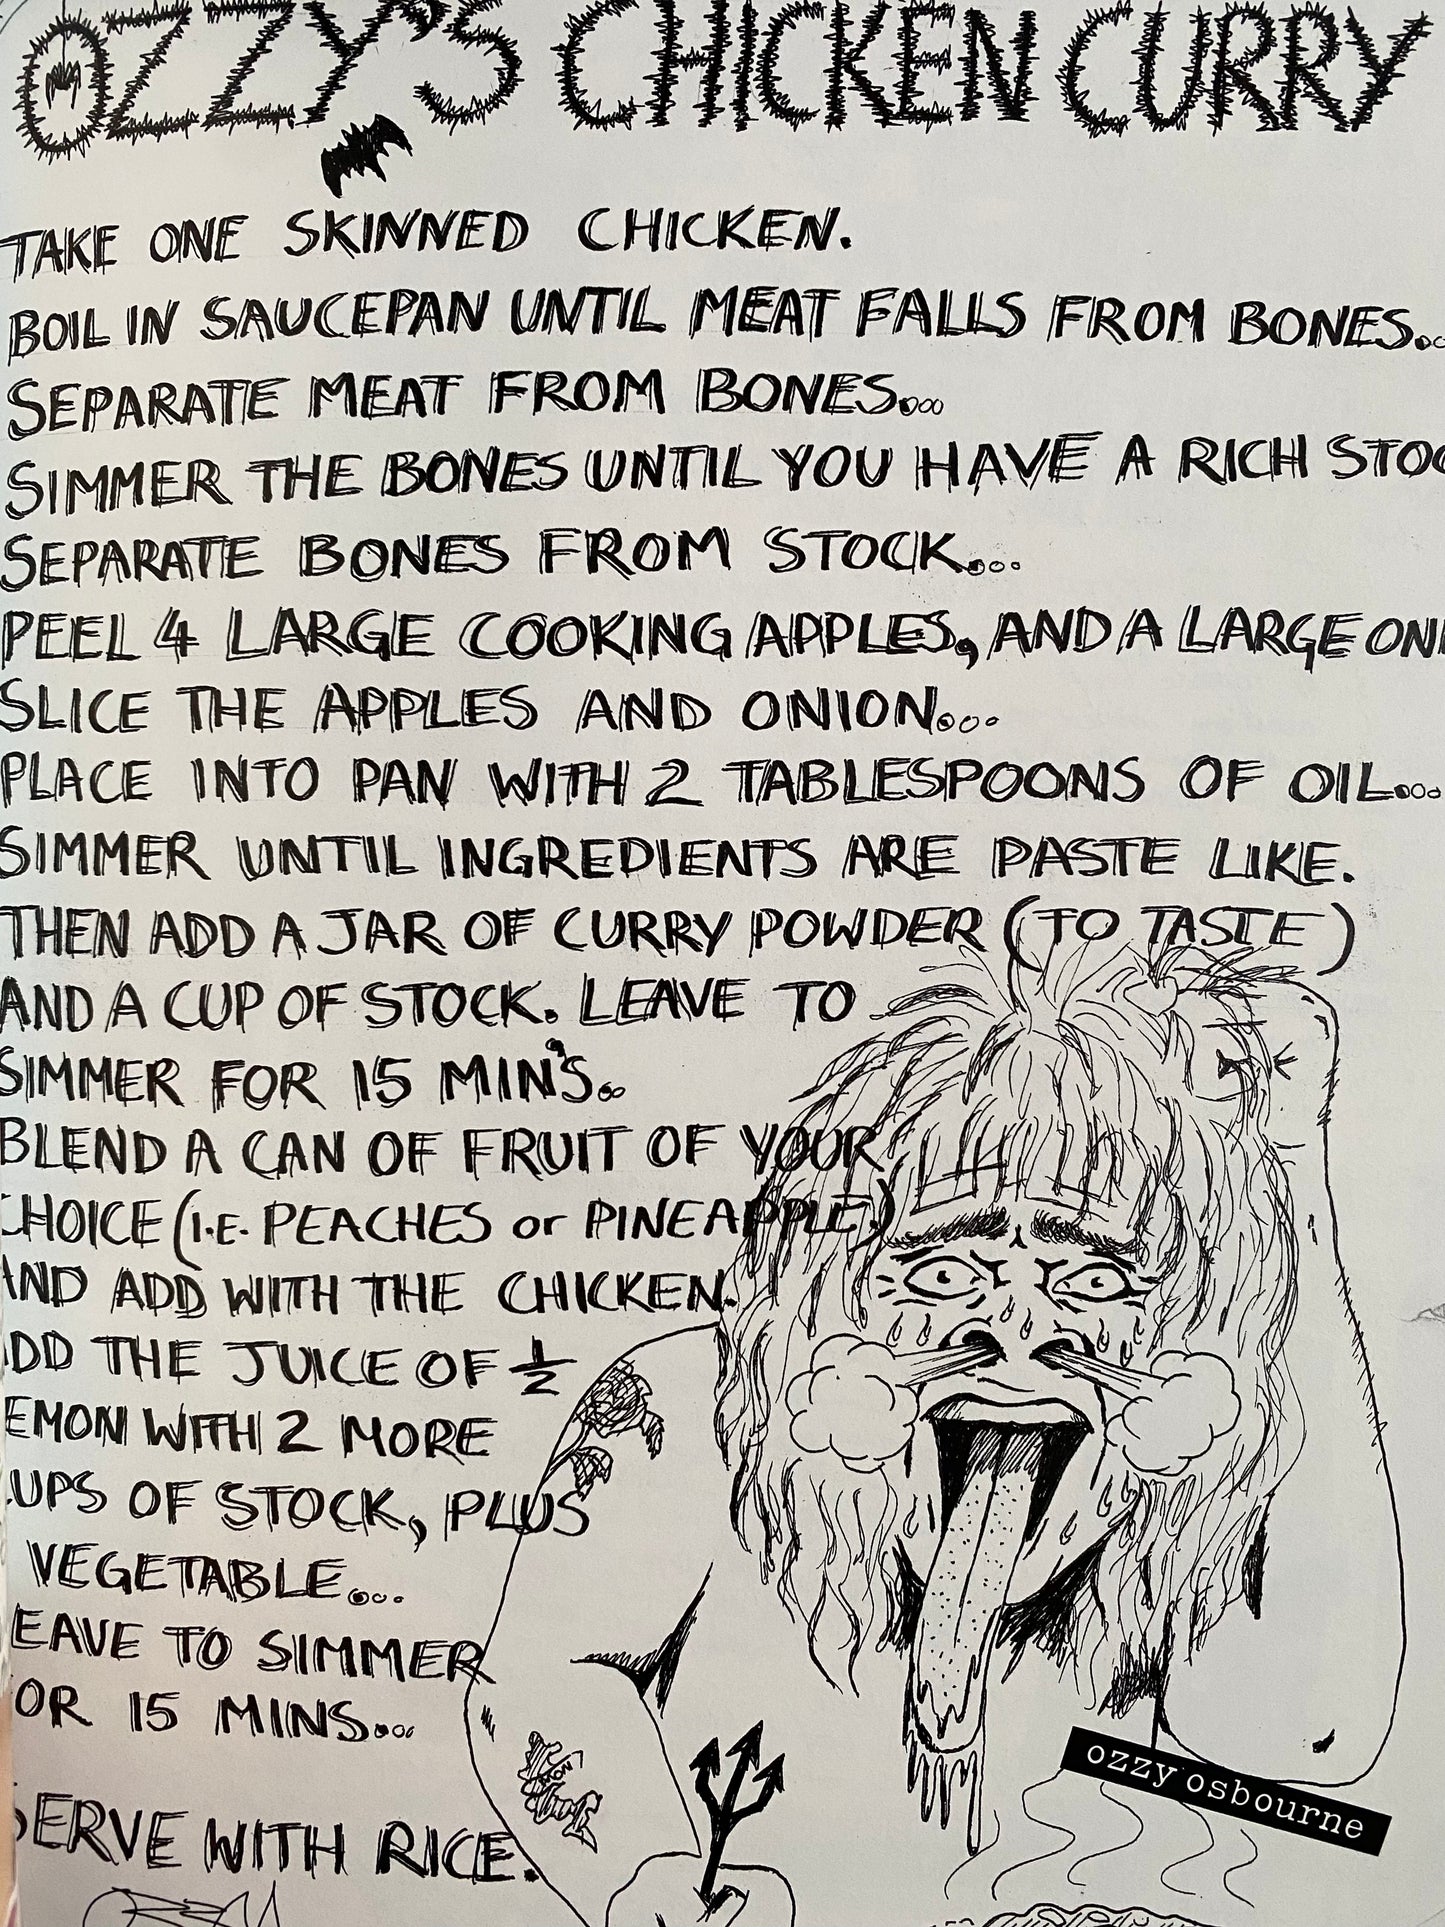 OZZY'S CHICKEN CURRY
TAKE ONE SKINNED CHICKEN.
BOIL IN SAUCEPAN UNTIL MEAT FALLS FROM BONES...
SEPARATE MEAT FROM BONES...
SIMMER THE BONES UNTIL YOU HAVE A RICH STOC
SEPARATE BONES FROM STOCK...
PEEL 4 LARGE COOKING APPLES, AND A LARGE ONI
SLICE THE APPLES AND ONION...
PLACE INTO PAN WITH 2 TABLESPOONS OF OIL...
SIMMER UNTIL INGREDIENTS ARE PASTE LIKE.
THEN ADD A JAR OF CURRY POWDER (TO TASTE)
AND A CUP OF STOCK. LEAVE TO
SIMMER FOR 15 MIN'S..
BLEND A CAN OF FRUIT OF YOUR
CHOICE (I.E. PEACHES or PINEAPPLE)
AND ADD WITH THE CHICKEN.
DD THE JUICE OF 1/2
EMON WITH 2 MORE
CUPS OF STOCK, PLUS
VEGETABLE...
EAVE TO SIMMER
OR 15 MINS...
SERVE WITH RICE.
ozzy osbourne